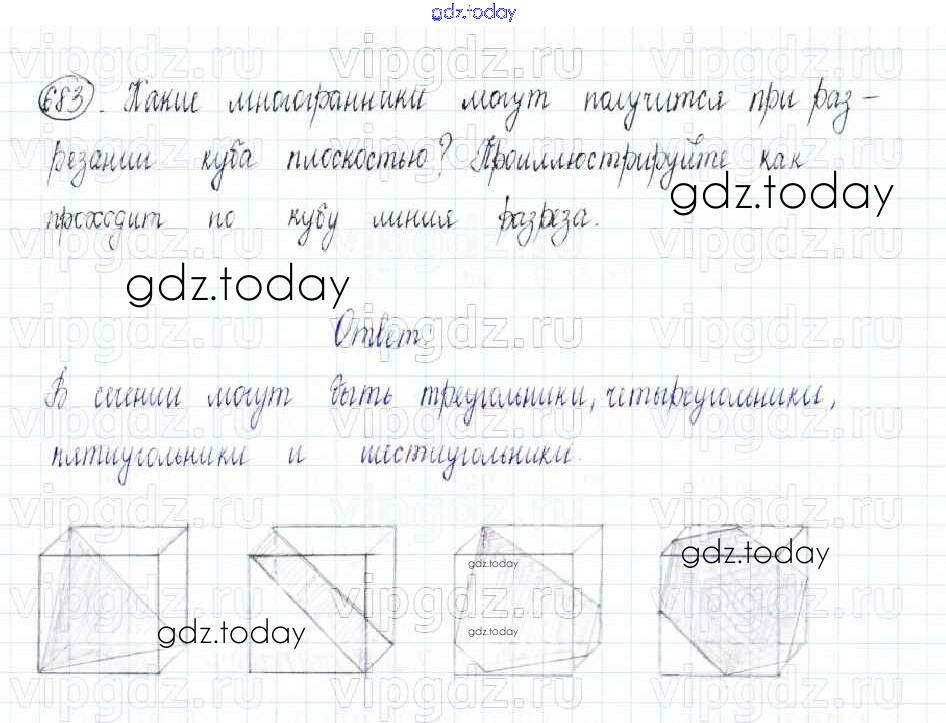 gdz.today
683. Какие многогранники могут получится при раз-
резании куба плоскостью? Проиллюстрируйте как
gdz.today
проходит по кубу линия разреза.
gdz.today
Ответ:
В сечении могут быть треугольники, четыреугольники,
пятиугольники и шестиугольники.
gdz.today
gdz.today
gdz.today
gdz.today
vipgdz.ru vipgdz.ru vipgdz.ru